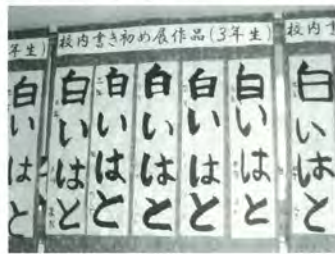 年生)
校内書き初め展作品(3年生)
校内書
白いはと
白いはと
白いはと
白いはと
白いはと
白いはと
白いはと